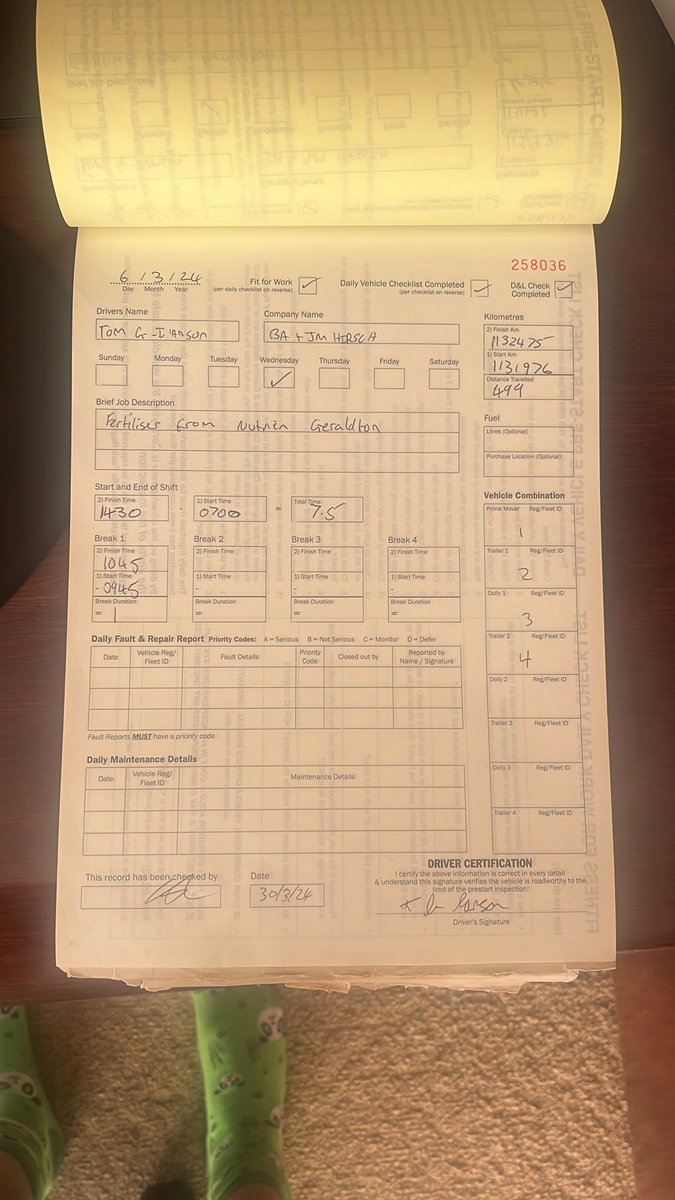 258036
6 / 3 / 24
Day Month Year
Fit for Work
(per daily checklist on reverse)
Daily Vehicle Checklist Completed
(per checklist on reverse)
D&L Check
Completed
Drivers Name
Tom
Company Name
BA + JM HIRSCH
Kilometres
2) Finish Km
1132475
1) Start Km
1131976
Distance Travelled
499
Sunday Monday Tuesday Wednesday Thursday Friday Saturday
Brief Job Description
Fertiliser from Nutrien Geraldton
Fuel
Litres (Optional)
Purchase Location (Optional)
Start and End of Shift
2) Finish Time 1) Start Time Total Time
1430 - 0700 = 7.5
Break 1 Break 2 Break 3 Break 4
2) Finish Time 2) Finish Time 2) Finish Time 2) Finish Time
1045
1) Start Time 1) Start Time 1) Start Time 1) Start Time
- 0945 - - -
Break Duration Break Duration Break Duration Break Duration
= 1 = = =
Vehicle Combination
Prime Mover Reg/Fleet ID
1
Trailer 1 Reg/Fleet ID
2
Dolly 1 Reg/Fleet ID
3
Trailer 2 Reg/Fleet ID
4
Dolly 2 Reg/Fleet ID
Trailer 3 Reg/Fleet ID
Dolly 3 Reg/Fleet ID
Trailer 4 Reg/Fleet ID
Daily Fault & Repair Report Priority Codes: A = Serious B = Not Serious C = Monitor D = Defer
Date Vehicle Reg/ Fleet ID Fault Details Priority Code Closed out by Reported by Name / Signature
Fault Reports MUST have a priority code
Daily Maintenance Details
Date Vehicle Reg/ Fleet ID Maintenance Details
This record has been checked by
Date
30/3/24
DRIVER CERTIFICATION
I certify the above information is correct in every detail
& understand this signature verifies the vehicle is roadworthy to the
limit of the prestart inspection:
Driver's Signature